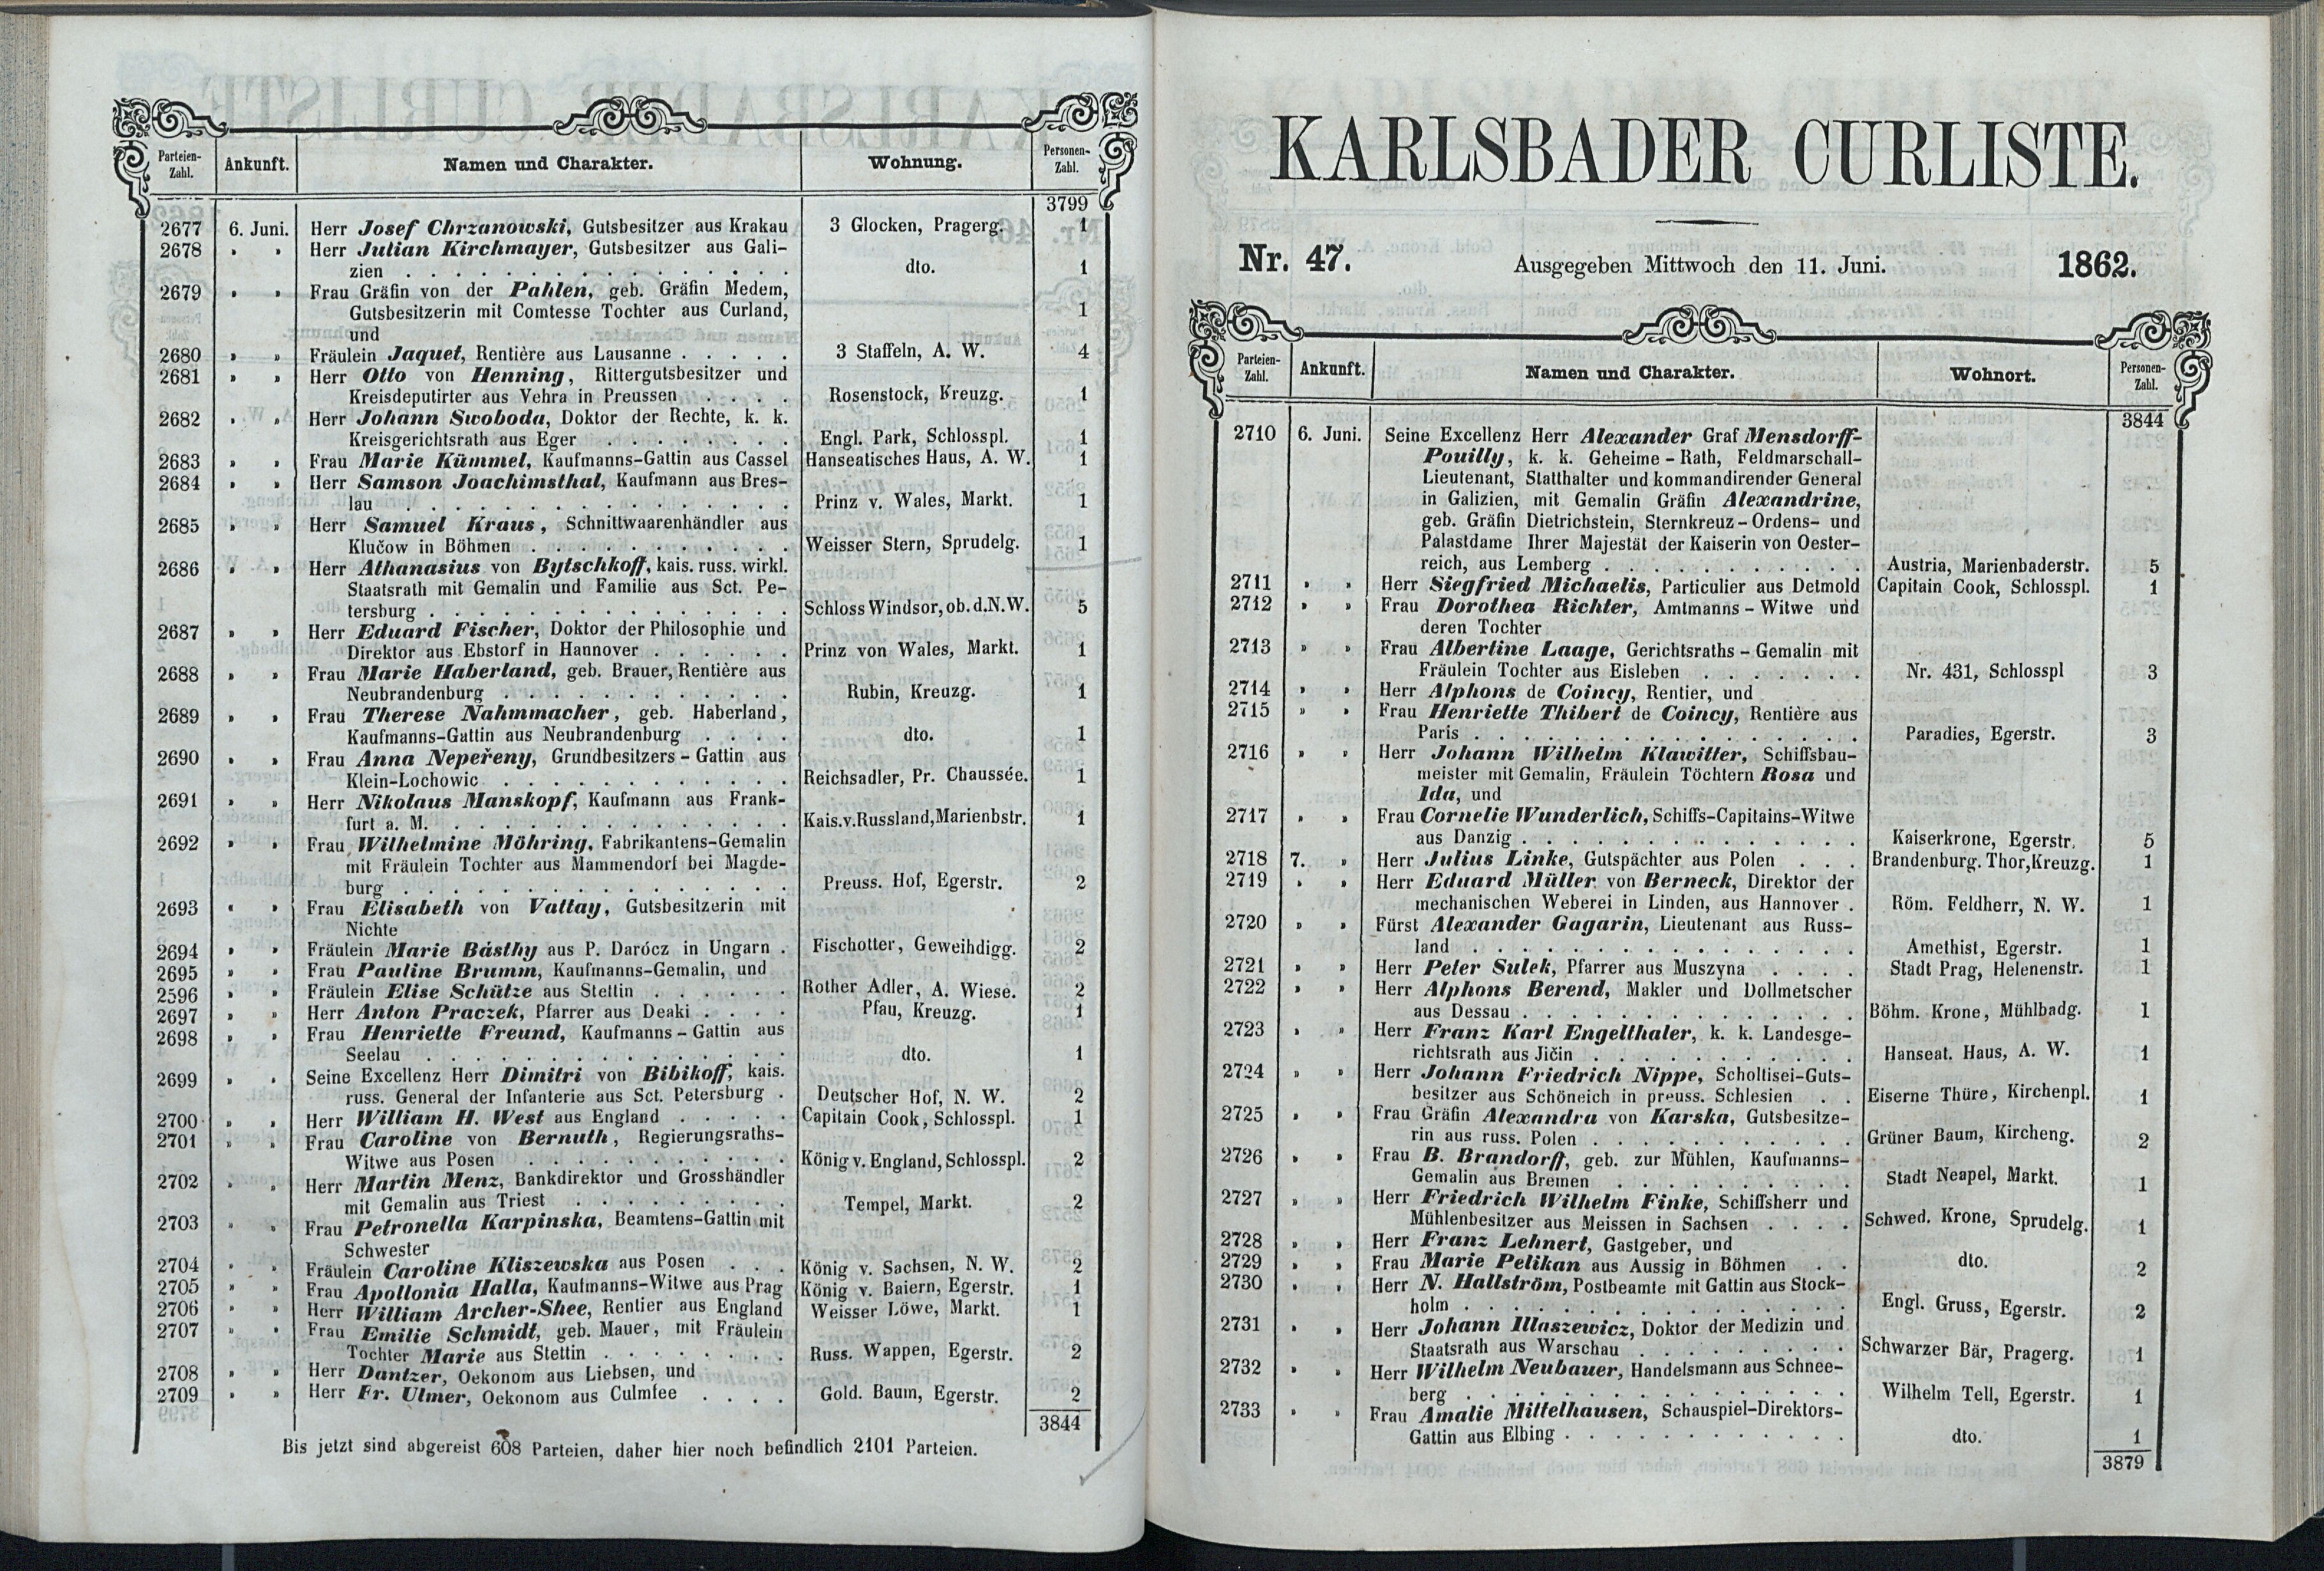 Parteien-Zahl. Ankunft. Namen und Charakter. Wohnung. Personen-Zahl.
3799
2677 6. Juni. Herr Josef Chrzanowski, Gutsbesitzer aus Krakau 3 Glocken, Pragerg. 1
2678 " " Herr Julian Kirchmayer, Gutsbesitzer aus Gali-
zien . . . . . . . . . . . . . . . . dto. 1
2679 " " Frau Gräfin von der Pahlen, geb. Gräfin Medem,
Gutsbesitzerin mit Comtesse Tochter aus Curland, 1
und
2680 " " Fräulein Jaquet, Rentière aus Lausanne . . . . . 3 Staffeln, A. W. 4
2681 " " Herr Otto von Henning, Rittergutsbesitzer und
Kreisdeputirter aus Vehra in Preussen . . . . Rosenstock, Kreuzg. 1
2682 " " Herr Johann Swoboda, Doktor der Rechte, k. k.
Kreisgerichtsrath aus Eger . . . . . . . . Engl. Park, Schlosspl. 1
2683 " " Frau Marie Kümmel, Kaufmanns-Gattin aus Cassel Hanseatisches Haus, A. W. 1
2684 " " Herr Samson Joachimsthal, Kaufmann aus Bres-
lau . . . . . . . . . . . . . . . . Prinz v. Wales, Markt. 1
2685 " " Herr Samuel Kraus, Schnittwaarenhändler aus
Klučow in Böhmen . . . . . . . . . . . Weisser Stern, Sprudelg. 1
2686 " " Herr Athanasius von Bytschkoff, kais. russ. wirkl.
Staatsrath mit Gemalin und Familie aus Sct. Pe-
tersburg . . . . . . . . . . . . . . . Schloss Windsor, ob. d. N. W. 5
2687 " " Herr Eduard Fischer, Doktor der Philosophie und
Direktor aus Ebstorf in Hannover . . . . . . Prinz von Wales, Markt. 1
2688 " " Frau Marie Haberland, geb. Brauer, Rentière aus
Neubrandenburg . . . . . . . . . . . . Rubin, Kreuzg. 1
2689 " " Frau Therese Nahmmacher, geb. Haberland,
Kaufmanns-Gattin aus Neubrandenburg . . . . dto. 1
2690 " " Frau Anna Nepeřeny, Grundbesitzers-Gattin aus
Klein-Lochowic . . . . . . . . . . . . Reichsadler, Pr. Chaussée. 1
2691 " " Herr Nikolaus Manskopf, Kaufmann aus Frank-
furt a. M. . . . . . . . . . . . . . . Kais. v. Russland, Marienbstr. 1
2692 " " Frau Wilhelmine Möhring, Fabrikantens-Gemalin
mit Fräulein Tochter aus Mammendorf bei Magde-
burg . . . . . . . . . . . . . . . . Preuss. Hof, Egerstr. 2
2693 " " Frau Elisabeth von Vattay, Gutsbesitzerin mit
Nichte
2694 " " Fräulein Marie Básthy aus P. Darócz in Ungarn . Fischotter, Geweihdigg. 2
2695 " " Frau Pauline Brumm, Kaufmanns-Gemalin, und
2596 " " Fräulein Elise Schütze aus Stettin . . . . . . Rother Adler, A. Wiese. 2
2697 " " Herr Anton Praczek, Pfarrer aus Deaki . . . . Pfau, Kreuzg. 1
2698 " " Frau Henriette Freund, Kaufmanns-Gattin aus
Seelau . . . . . . . . . . . . . . . dto. 1
2699 " " Seine Excellenz Herr Dimitri von Bibikoff, kais.
russ. General der Infanterie aus Sct. Petersburg . Deutscher Hof, N. W. 2
2700 " " Herr William H. West aus England . . . . . Capitain Cook, Schlosspl. 1
2701 " " Frau Caroline von Bernuth, Regierungsraths-
Witwe aus Posen . . . . . . . . . . . König v. England, Schlosspl. 2
2702 " " Herr Martin Menz, Bankdirektor und Grosshändler
mit Gemalin aus Triest . . . . . . . . . Tempel, Markt. 2
2703 " " Frau Petronella Karpinska, Beamtens-Gattin mit
Schwester
2704 " " Fräulein Caroline Kliszewska aus Posen . . . König v. Sachsen, N. W. 2
2705 " " Frau Apollonia Halla, Kaufmanns-Witwe aus Prag König v. Baiern, Egerstr. 1
2706 " " Herr William Archer-Shee, Rentier aus England Weisser Löwe, Markt. 1
2707 " " Frau Emilie Schmidt, geb. Mauer, mit Fräulein
Tochter Marie aus Stettin . . . . . . . . Russ. Wappen, Egerstr. 2
2708 " " Herr Dantzer, Oekonom aus Liebsen, und
2709 " " Herr Fr. Ulmer, Oekonom aus Culmfee . . . . Gold. Baum, Egerstr. 2
3844
Bis jetzt sind abgereist 608 Parteien, daher hier noch befindlich 2101 Parteien.
KARLSBADER CURLISTE.
Nr. 47. Ausgegeben Mittwoch den 11. Juni. 1862.
Parteien-Zahl. Ankunft. Namen und Charakter. Wohnort. Personen-Zahl.
3844
2710 6. Juni. Seine Excellenz Herr Alexander Graf Mensdorff-
Pouilly, k. k. Geheime-Rath, Feldmarschall-
Lieutenant, Statthalter und kommandirender General
in Galizien, mit Gemalin Gräfin Alexandrine,
geb. Gräfin Dietrichstein, Sternkreuz-Ordens- und
Palastdame Ihrer Majestät der Kaiserin von Oester-
reich, aus Lemberg . . . . . . . . . . . Austria, Marienbaderstr. 5
2711 " " Herr Siegfried Michaelis, Particulier aus Detmold Capitain Cook, Schlosspl. 1
2712 " " Frau Dorothea Richter, Amtmanns-Witwe und
deren Tochter
2713 " " Frau Albertine Laage, Gerichtsraths-Gemalin mit
Fräulein Tochter aus Eisleben . . . . . . . Nr. 431, Schlosspl 3
2714 " " Herr Alphons de Coincy, Rentier, und
2715 " " Frau Henriette Thibert de Coincy, Rentière aus
Paris . . . . . . . . . . . . . . . . Paradies, Egerstr. 3
2716 " " Herr Johann Wilhelm Klawitter, Schiffsbau-
meister mit Gemalin, Fräulein Töchtern Rosa und
Ida, und
2717 " " Frau Cornelie Wunderlich, Schiffs-Capitains-Witwe
aus Danzig . . . . . . . . . . . . . . Kaiserkrone, Egerstr. 5
2718 7. " Herr Julius Linke, Gutspächter aus Polen . . . Brandenburg. Thor, Kreuzg. 1
2719 " " Herr Eduard Müller von Berneck, Direktor der
mechanischen Weberei in Linden, aus Hannover . Röm. Feldherr, N. W. 1
2720 " " Fürst Alexander Gagarin, Lieutenant aus Russ-
land . . . . . . . . . . . . . . . . Amethist, Egerstr. 1
2721 " " Herr Peter Sulek, Pfarrer aus Muszyna . . . . Stadt Prag, Helenenstr. 1
2722 " " Herr Alphons Berend, Makler und Dollmetscher
aus Dessau . . . . . . . . . . . . . . Böhm. Krone, Mühlbadg. 1
2723 " " Herr Franz Karl Engelthaler, k. k. Landesge-
richtsrath aus Jičin . . . . . . . . . . . Hanseat. Haus, A. W. 1
2724 " " Herr Johann Friedrich Nippe, Scholtisei-Guts-
besitzer aus Schöneich in preuss. Schlesien . . Eiserne Thüre, Kirchenpl. 1
2725 " " Frau Gräfin Alexandra von Karska, Gutsbesitze-
rin aus russ. Polen . . . . . . . . . . . Grüner Baum, Kircheng. 2
2726 " " Frau B. Brandorff, geb. zur Mühlen, Kaufmanns-
Gemalin aus Bremen . . . . . . . . . . Stadt Neapel, Markt. 1
2727 " " Herr Friedrich Wilhelm Finke, Schiffsherr und
Mühlenbesitzer aus Meissen in Sachsen . . . . Schwed. Krone, Sprudelg. 1
2728 " " Herr Franz Lehnert, Gastgeber, und
2729 " " Frau Marie Pelikan aus Aussig in Böhmen . . dto. 2
2730 " " Herr N. Hallström, Postbeamte mit Gattin aus Stock-
holm . . . . . . . . . . . . . . . . Engl. Gruss, Egerstr. 2
2731 " " Herr Johann Illaszewicz, Doktor der Medizin und
Staatsrath aus Warschau . . . . . . . . . Schwarzer Bär, Pragerg. 1
2732 " " Herr Wilhelm Neubauer, Handelsmann aus Schnee-
berg . . . . . . . . . . . . . . . . Wilhelm Tell, Egerstr. 1
2733 " " Frau Amalie Mittelhausen, Schauspiel-Direktors-
Gattin aus Elbing . . . . . . . . . . . . dto. 1
3879